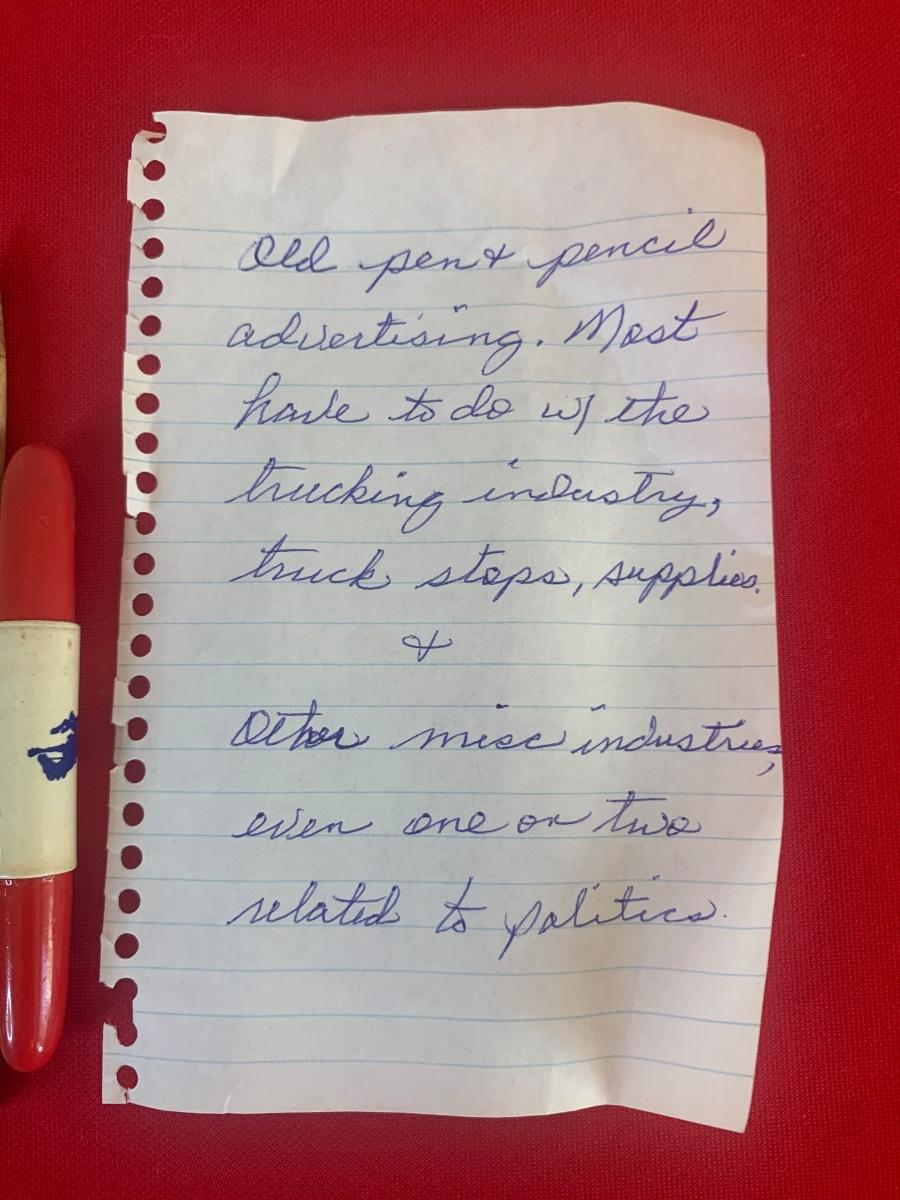 Old pen & pencil
advertising. Most
have to do w/ the
trucking industry,
truck stops, supplies.
&
Other misc industries,
even one or two
related to politics.